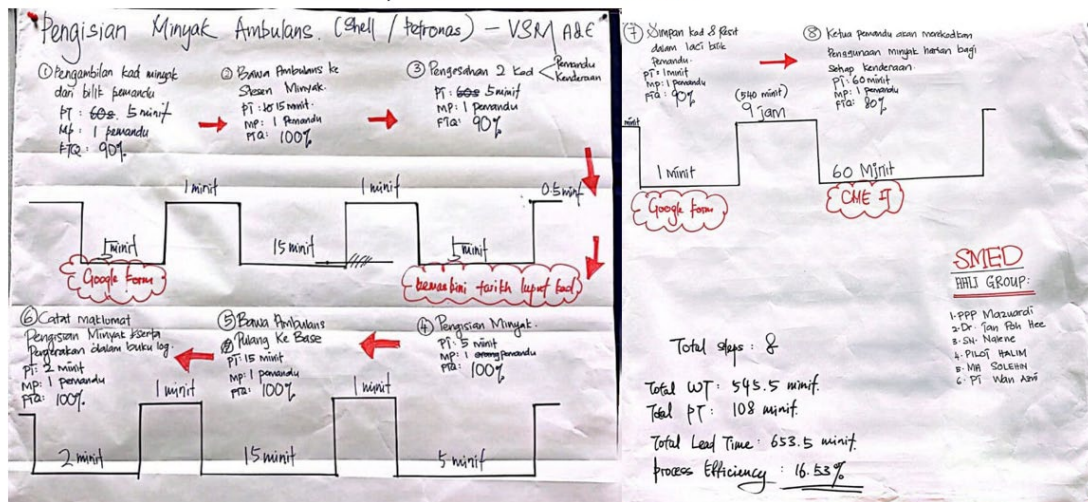 Pengisian Minyak Ambulans. (Shell / Petronas) – VSM A&E
① Pengambilan kad minyak
dari bilik pemandu
PT: 60s. 5 minit
MP: 1 pemandu
FTQ: 90%
② Bawa Ambulans ke
Stesen Minyak.
PT: 15 minit.
MP: 1 Pemandu
FTQ: 100%
③ Pengesahan 2 kad < Pemandu
Kenderaan
PT: 60s 5 minit
MP: 1 pemandu
FTQ: 90%
1 minit
1 minit
0.5 minit
5 minit
15 minit
5 minit
Google Form
kemaskini tarikh luput kad
⑥ Catat maklumat
Pengisian Minyak & serta
Pergerakan dalam buku log.
PT: 2 minit
MP: 1 pemandu
FTQ: 100%
⑤ Bawa Ambulans
Pulang Ke Base
PT: 15 minit
MP: 1 pemandu
FTQ: 100%
④ Pengisian Minyak.
PT: 5 minit
MP: 1 orang pemandu
FTQ: 100%
1 minit
1 minit
2 minit
15 minit
5 minit
⑦ Simpan kad & Resit
dalam laci bilik
Pemandu.
PT: 1 minit
MP: 1 pemandu
FTQ: 90%
⑧ Ketua pemandu akan merekodkan
Penggunaan minyak harian bagi
Setiap Kenderaan.
PT: 60 minit
MP: 1 pemandu
FTQ: 80%
(540 minit)
9 jam
minit
1 Minit
60 Minit
Google Form
CME IT
SMED
AHLI GROUP:
1. PPP Mazuardi
2. Dr. Tan Poh Hee
3. SN. Nalene
4. PILOT HALIM
5. MA SOLEHIN
6. PT Wan Azmi
Total steps: 8
Total WT: 545.5 minit.
Total PT: 108 minit.
Total Lead Time: 653.5 minit.
Process Efficiency: 16.53%